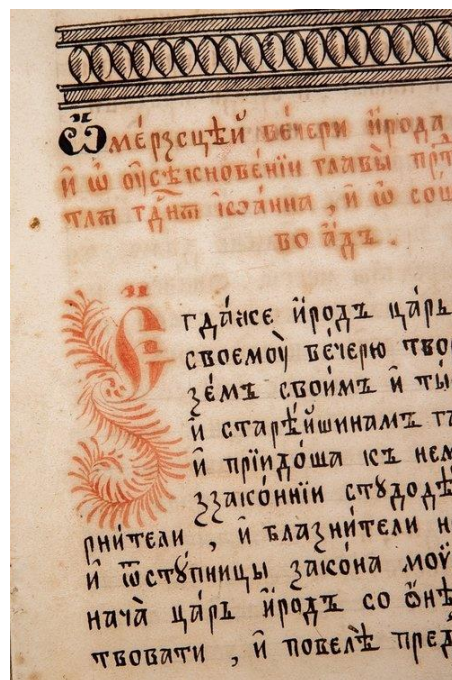 Ѽ мéрзсцѣй вéчери и҆́рода
и҆ ѡ ᲂу҆сѣкновéнїи главы̀ прⷣ
тлѧ гдⷭ҇нѧ і҆ѡáнна , и҆ ѡ сош
во áдъ .
Е҆гдáже и҆́родъ цáрь
своемоу̀ вéчерю тво
зéмъ свои́мъ и҆ ты́
и҆ старѣ́йшинамъ га
и҆ прїидóша къ нем
ззакóннїи стꙋдодѣ
рни́тели , и҆ блазни́тели н
и҆ ѿстꙋ́пницы закóна моѷ
начà цáрь и҆́родъ со ѻ҆нѣ
твовати , и҆ повелѣ̀ пред